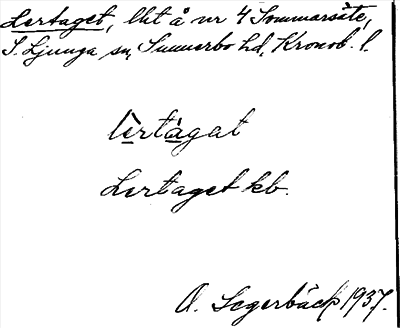 Lertaget, lht å nr 4 Sommarsäte,
S. Ljunga sn, Sunnerbo hd, Kronob. l.
lèrtágat
Lertaget kb.
O. Segerbäck 1937.